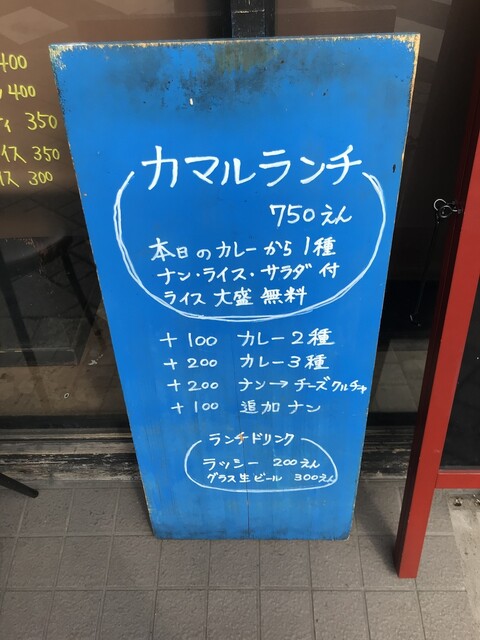 400
400
ィ 350
イス 350
イス 300
カマルランチ
750えん
本日のカレーから1種
ナン・ライス・サラダ付
ライス大盛無料
+100 カレー2種
+200 カレー3種
+200 ナン→チーズクルチャ
+100 追加ナン
ランチドリンク
ラッシー 200えん
グラス生ビール 300えん